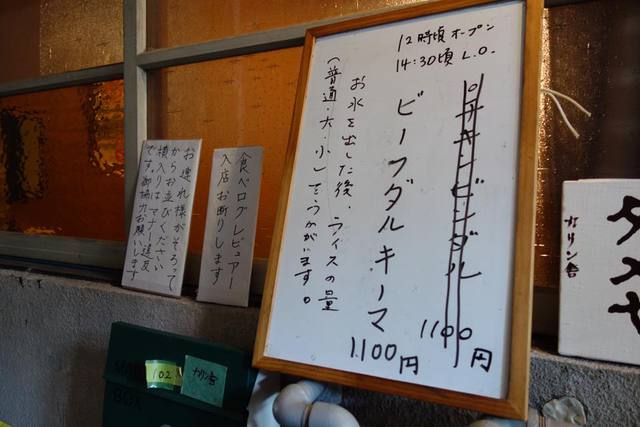 12時頃オープン
14:30頃L.O.
ポークビンダルー 1100円
ビーフダルキーマ 1,100円
お水を出した後、ライスの量
(普通・大・小)をうかがいます。
食べログレビュアー
入店お断りします
お連れ様がそろって
からお並びください
横入りはマナー違反
です。御協力お願いします
カリン舎
102
カリン舎
BOX